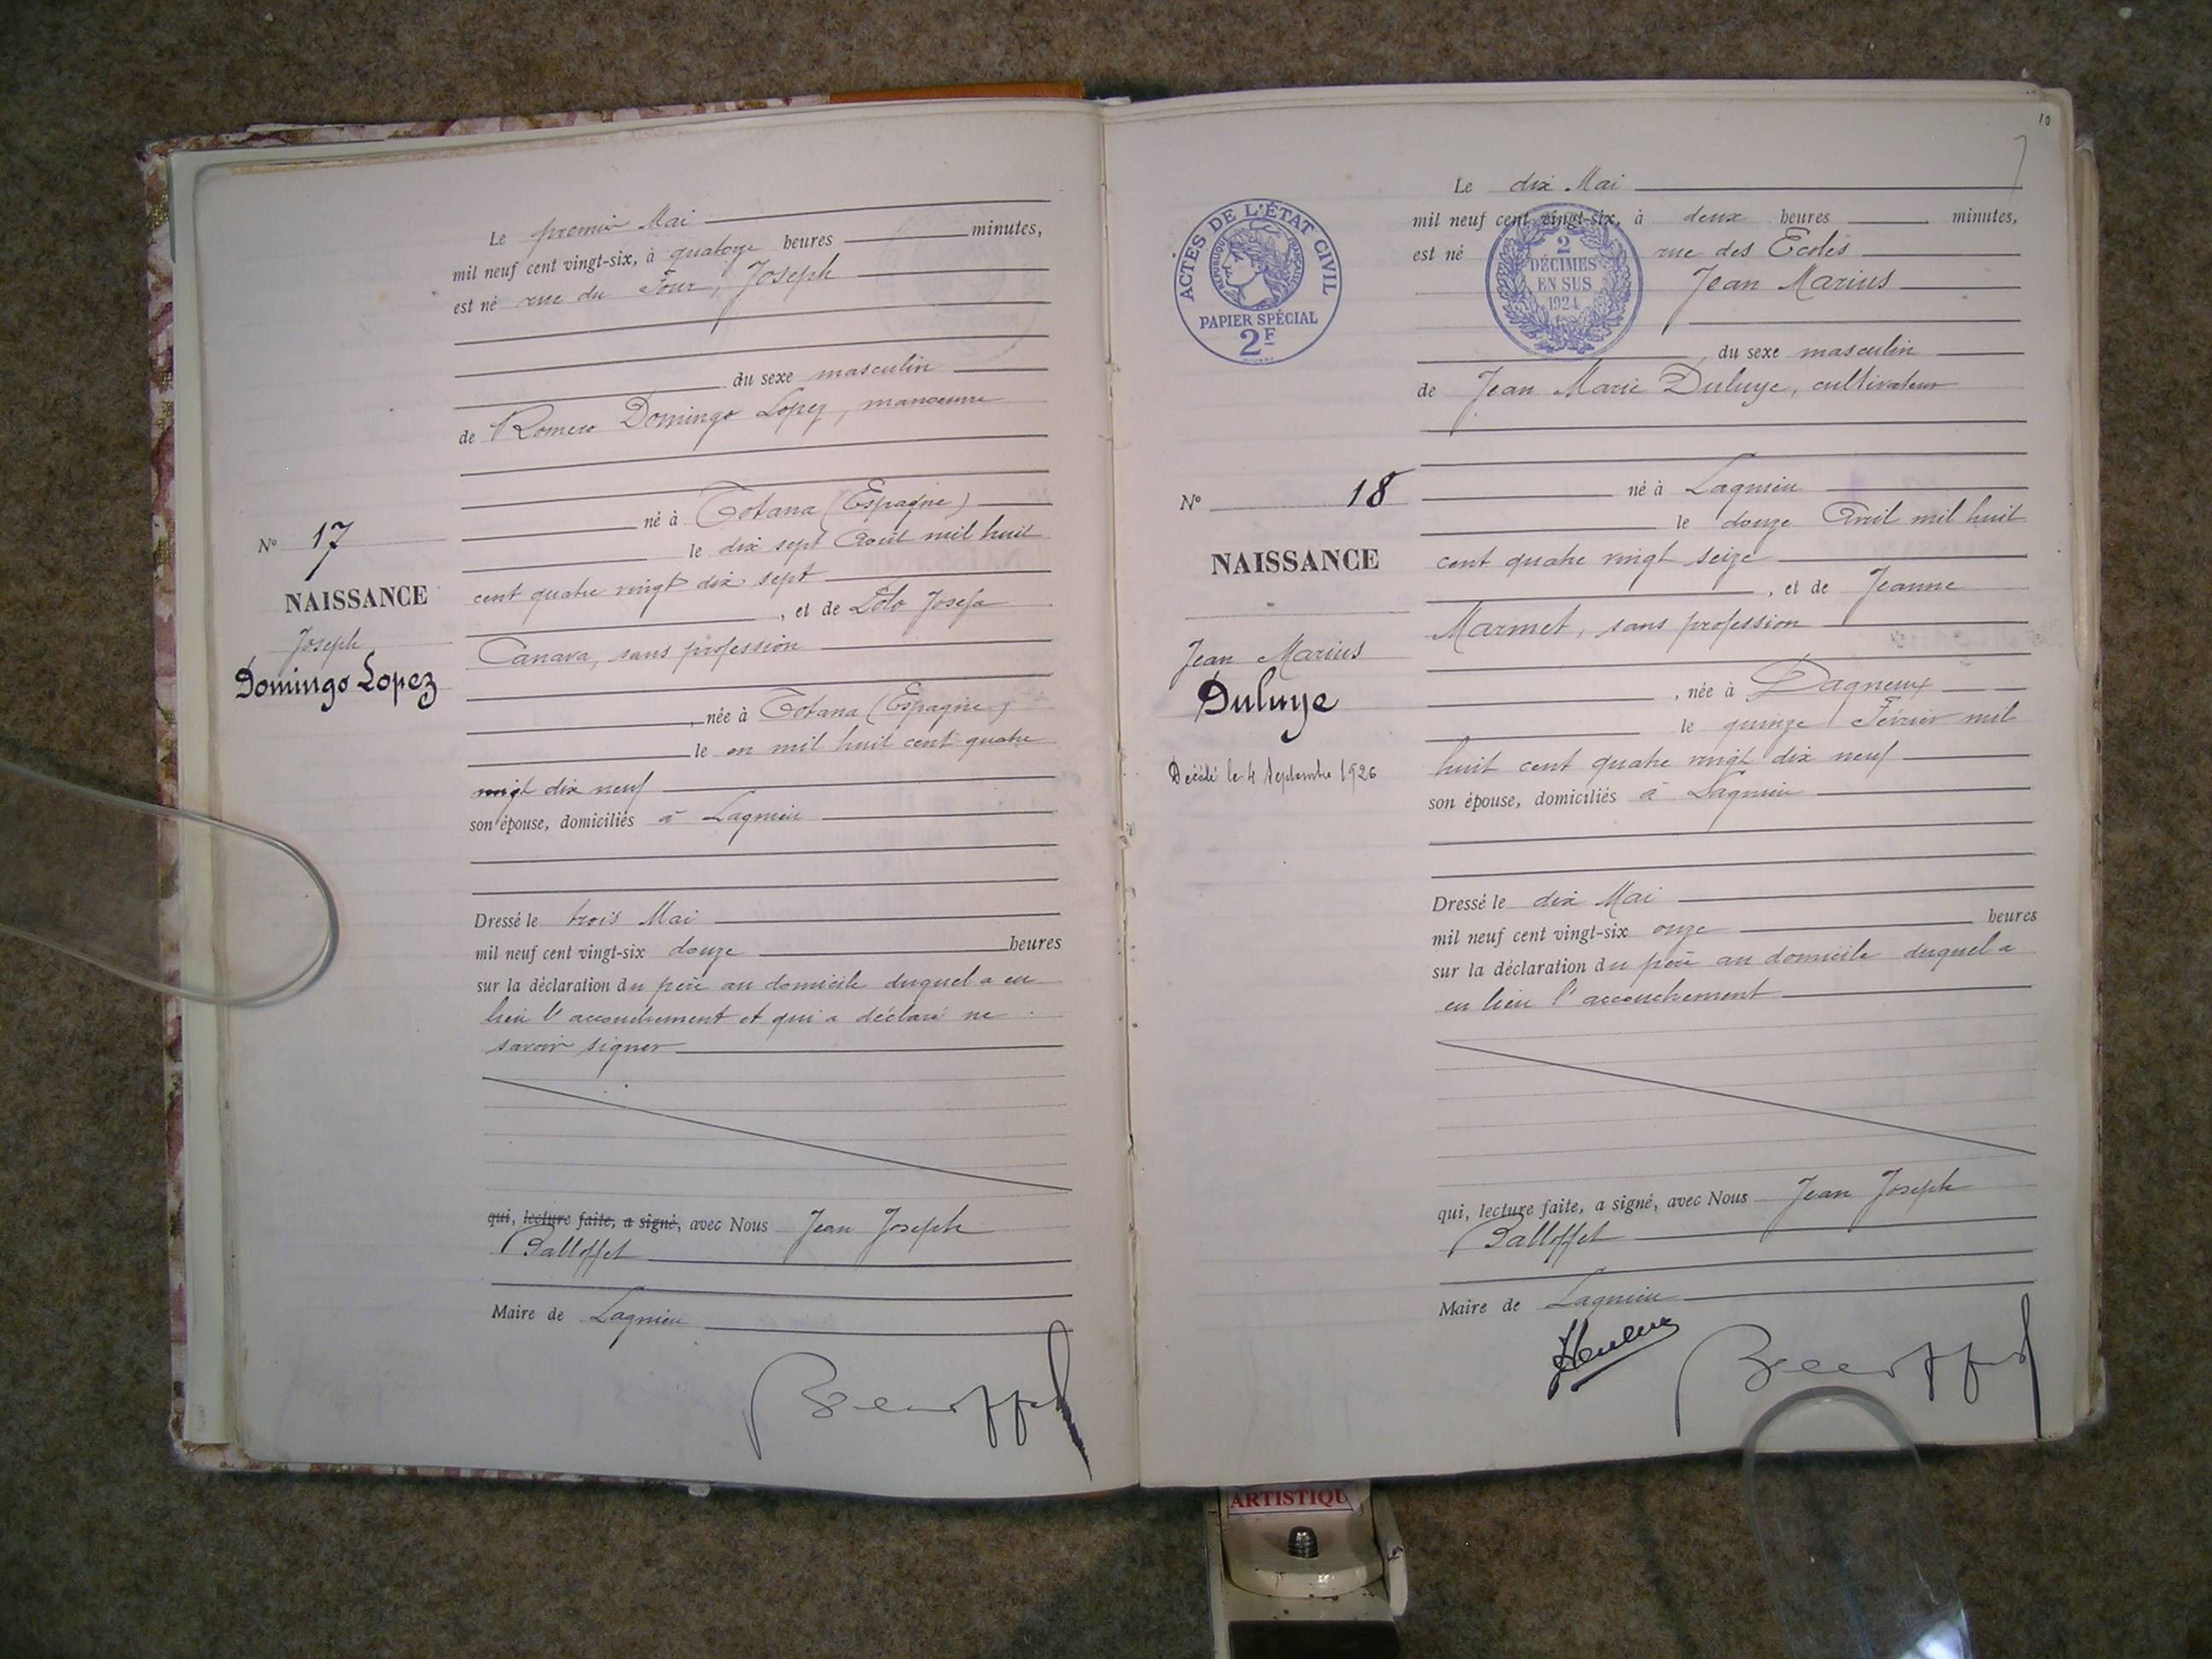 Le premier Mai
mil neuf cent vingt-six, à quatorze heures minutes,
est né rue du Four, Joseph
du sexe masculin
de Romero Domingo Lopez, manoeuvre
né à Totana (Espagne)
le dix sept Août mil huit
cent quatre vingt dix sept
, et de Soto Josefa
Canava, sans profession
, née à Totana (Espagne)
le en mil huit cent quatre
vingt dix neuf
son épouse, domiciliés à Lagnieu
Dressé le trois Mai
mil neuf cent vingt-six douze heures
sur la déclaration du père au domicile duquel a eu
lieu l'accouchement et qui a déclaré ne
savoir signer
qui, lecture faite, a signé, avec Nous Jean Joseph
Balloffet
Maire de Lagnieu
N° 17
NAISSANCE
Joseph
Domingo Lopez
10
Le dix Mai
mil neuf cent vingt-six, à deux heures minutes,
est né rue des Ecoles
Jean Marius
du sexe masculin
de Jean Marie Duluye, cultivateur
né à Lagnieu
le douze Avril mil huit
cent quatre vingt seize
, et de Jeanne
Marmet, sans profession
, née à Dagneux
le quinze Février mil
huit cent quatre vingt dix neuf
son épouse, domiciliés à Lagnieu
Dressé le dix Mai
mil neuf cent vingt-six onze heures
sur la déclaration du père au domicile duquel a
eu lieu l'accouchement
qui, lecture faite, a signé, avec Nous Jean Joseph
Balloffet
Maire de Lagnieu
ACTES DE L'ÉTAT CIVIL
RÉPUBLIQUE FRANÇAISE
PAPIER SPÉCIAL
2F
2
DÉCIMES
EN SUS
1924
N° 18
NAISSANCE
Jean Marius
Duluye
Décédé le 4 Septembre 1926
ARTISTIQU